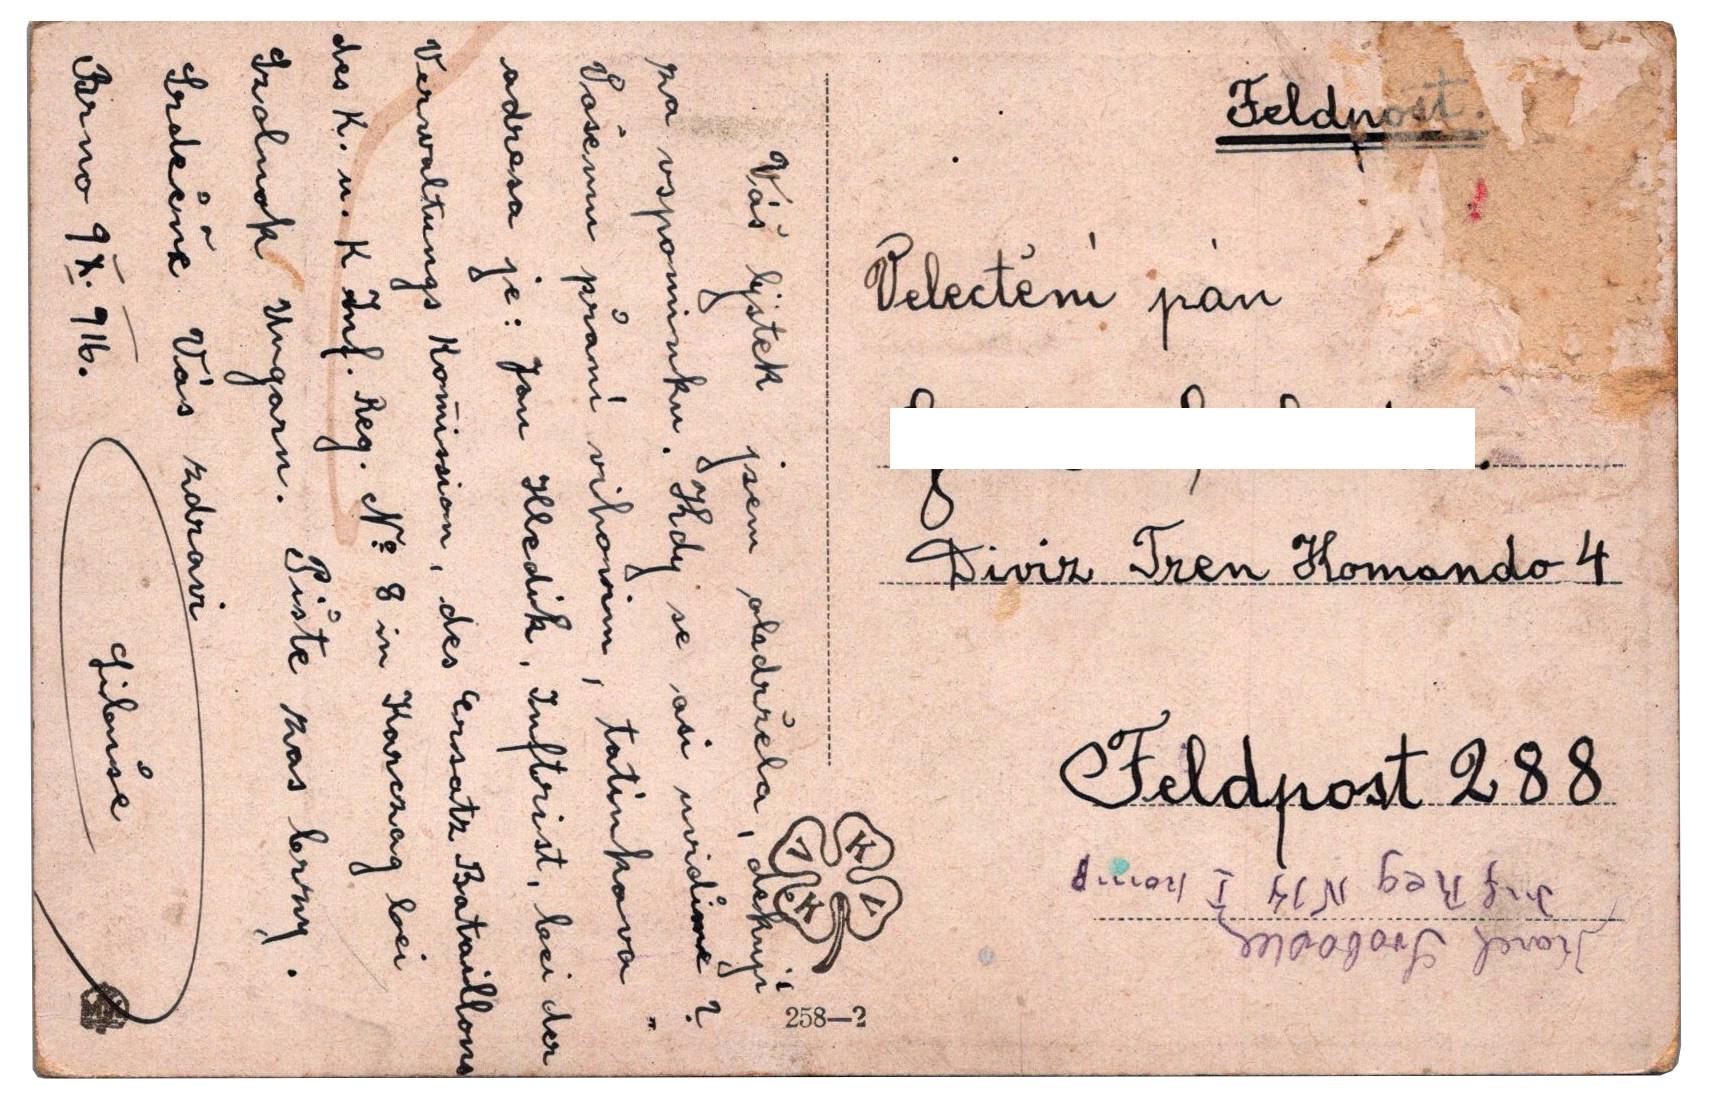 Feldpost.
Velectění pán
Diviz Tren Komando 4
Feldpost 288
Karel Svoboda
Inf Reg N 14 I komp
Váš lýstek jsem obdržela, dekuji
za vspomínku. Kdy se asi uvidíme?
Vašemu přání vihovím, tatínkova
adresa je: Jan Hledik, Inftrist, bei der
Verwaltungs Komission, des Ersatz Bataillons
des K. u. K Inf. Reg. No 8 in Karczag bei
Szolnok Ungarn. Pište zas brzy.
Srdečně Vás zdraví
Brno 9 X. 916.
Libuše
258—2